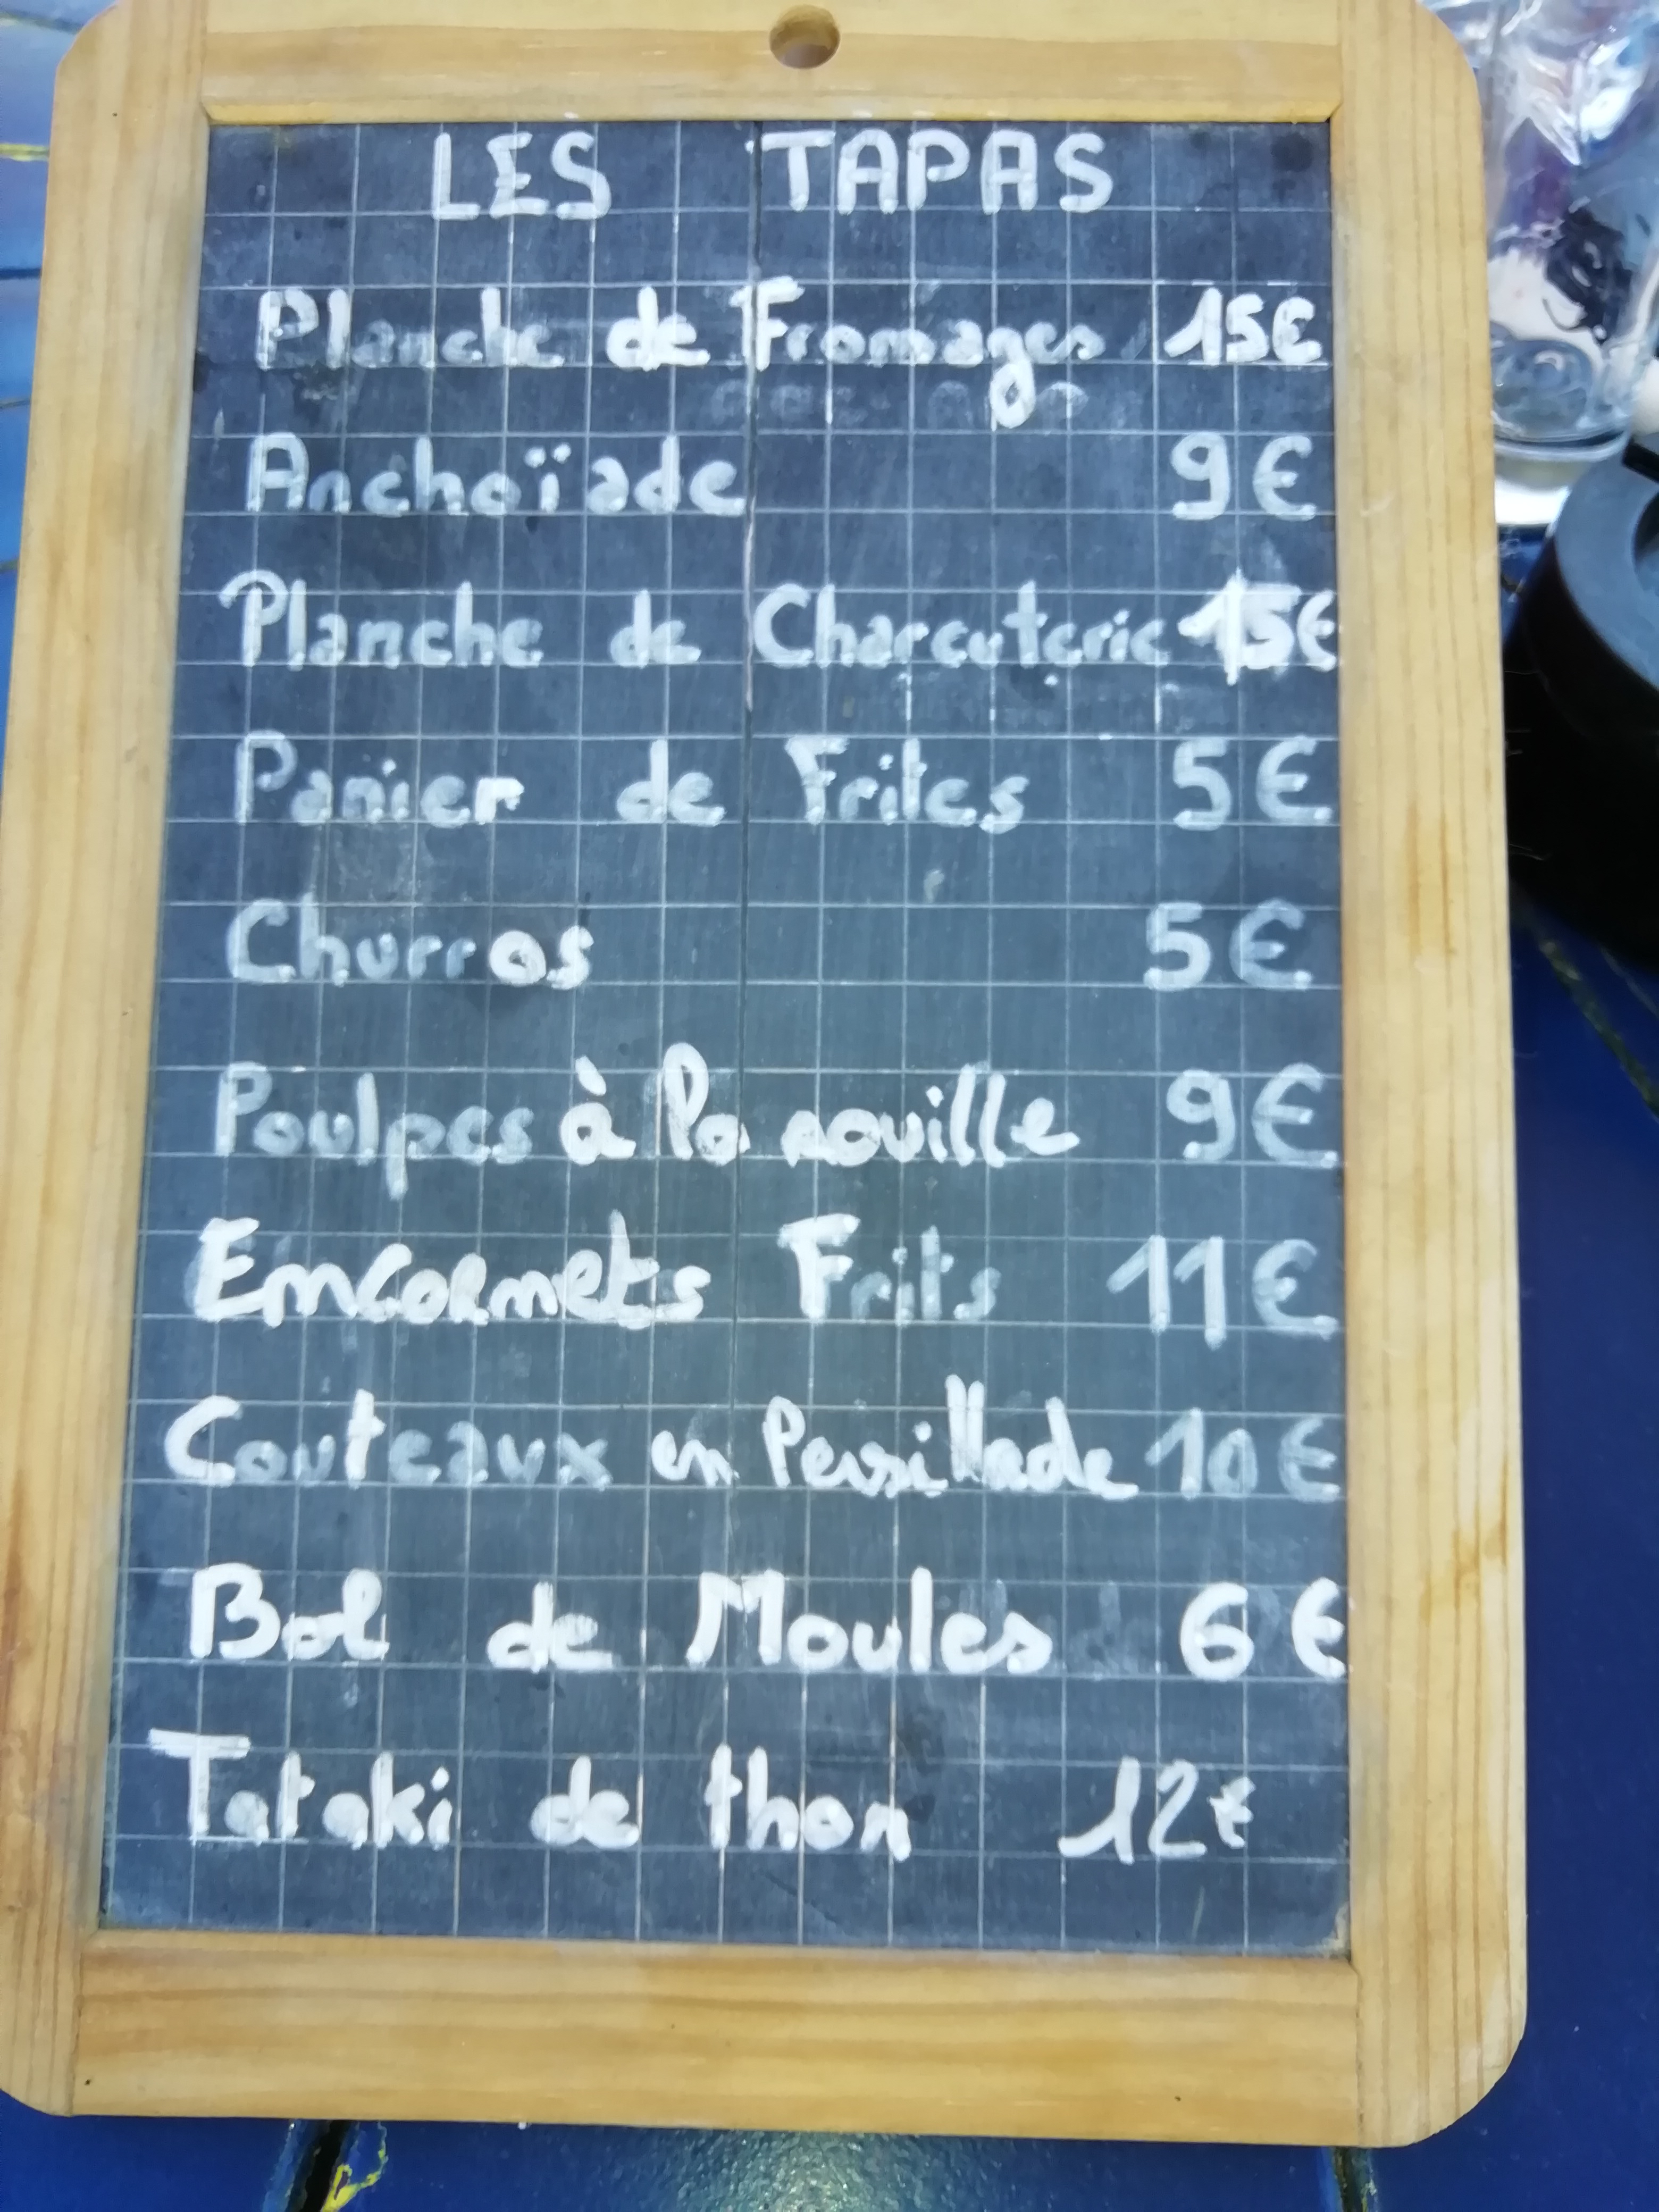 LES TAPAS
Planche de Fromages 15€
Anchoïade 9€
Planche de Charcuterie 15€
Panier de Frites 5€
Churros 5€
Poulpes à la rouille 9€
Encornets Frits 11€
Couteaux en Persillade 10€
Bol de Moules 6€
Tataki de thon 12€